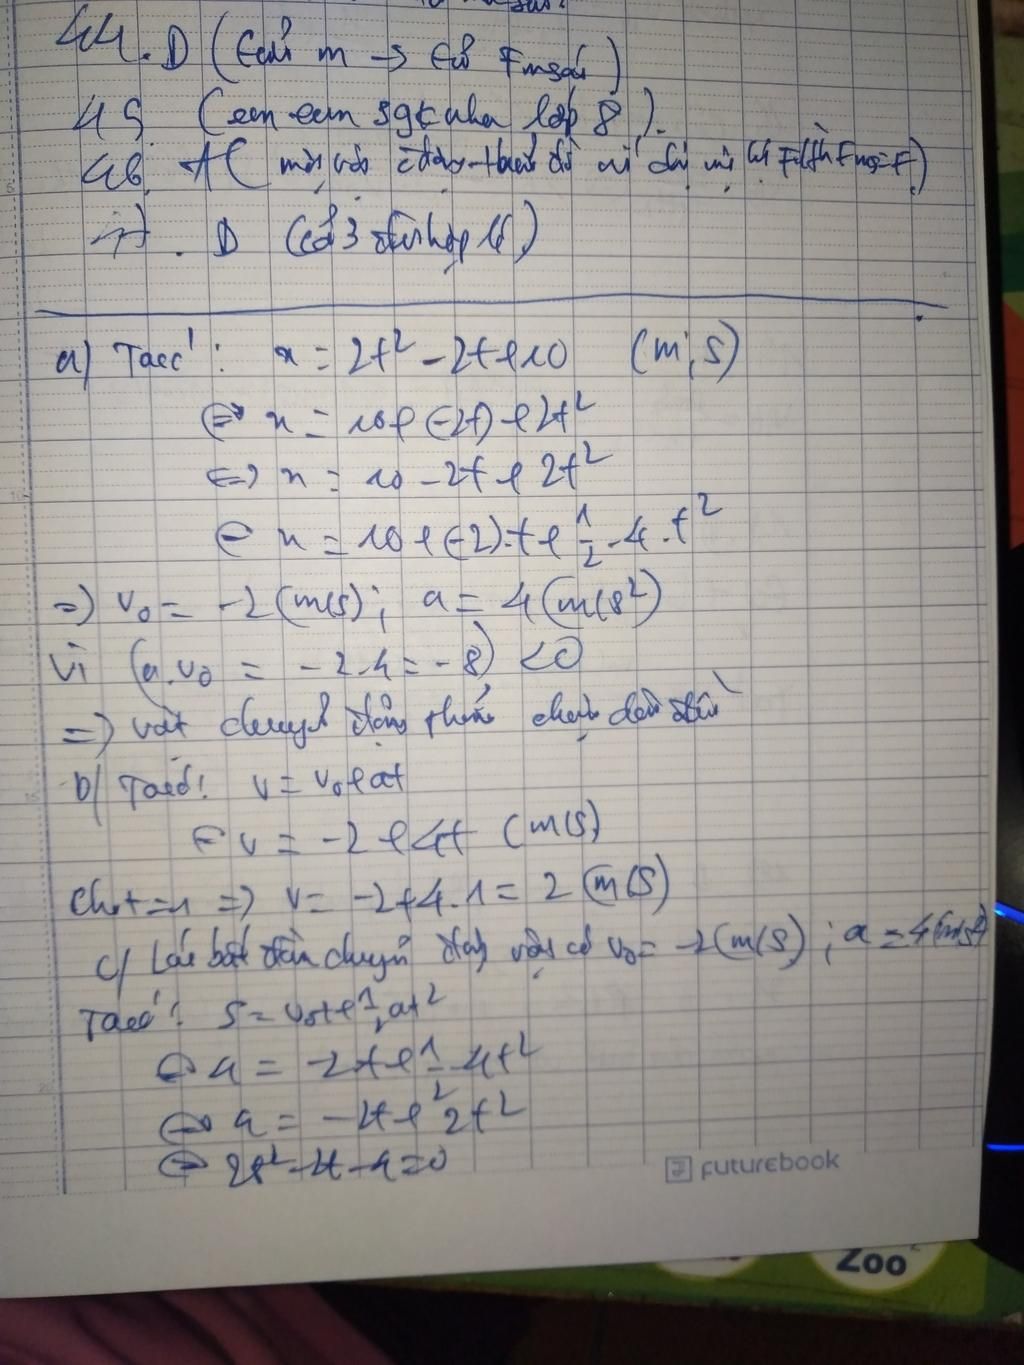 44. D (Giảm m → Giảm Fmsát)
45 (xem sgk nha lớp 8).
46. A (
47. D (Cả 3 đều hợp lí)
a) Ta có: x = 2t² - 2t + 10 (m; s)
⇔ x = 10 + (-2t) + 2t²
⇔ x = 10 - 2t + 2t²
⇔ x = 10 + (-2).t + 1/2 . 4 . t²
⇒ v₀ = -2 (m/s); a = 4 (m/s²)
Vì (a.v₀ = -2.4 = -8) < 0
⇒ vật chuyển động thẳng chậm dần đều
b) Ta có: v = v₀ + at
⇔ v = -2 + 4t (m/s)
Cho t = 1 ⇒ v = -2 + 4.1 = 2 (m/s)
c) Lúc bắt đầu chuyển động vật có v₀ = -2 (m/s); a = 4 (m/s²)
Ta có: S = v₀t + 1/2 at²
⇔ 4 = -2t + 1/2 4t²
⇔ 4 = -2t + 2t²
⇔ 2t² - 2t - 4 = 0
futurebook
Zoo